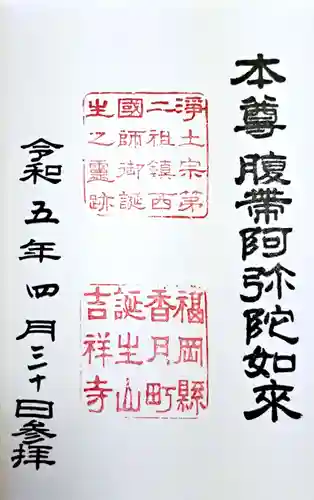 本尊 腹帯阿弥陀如来
淨土宗第
二祖鎮西
國師御誕
生之靈跡
福岡縣
香月町
誕生山
吉祥寺
令和五年四月三十日参拝